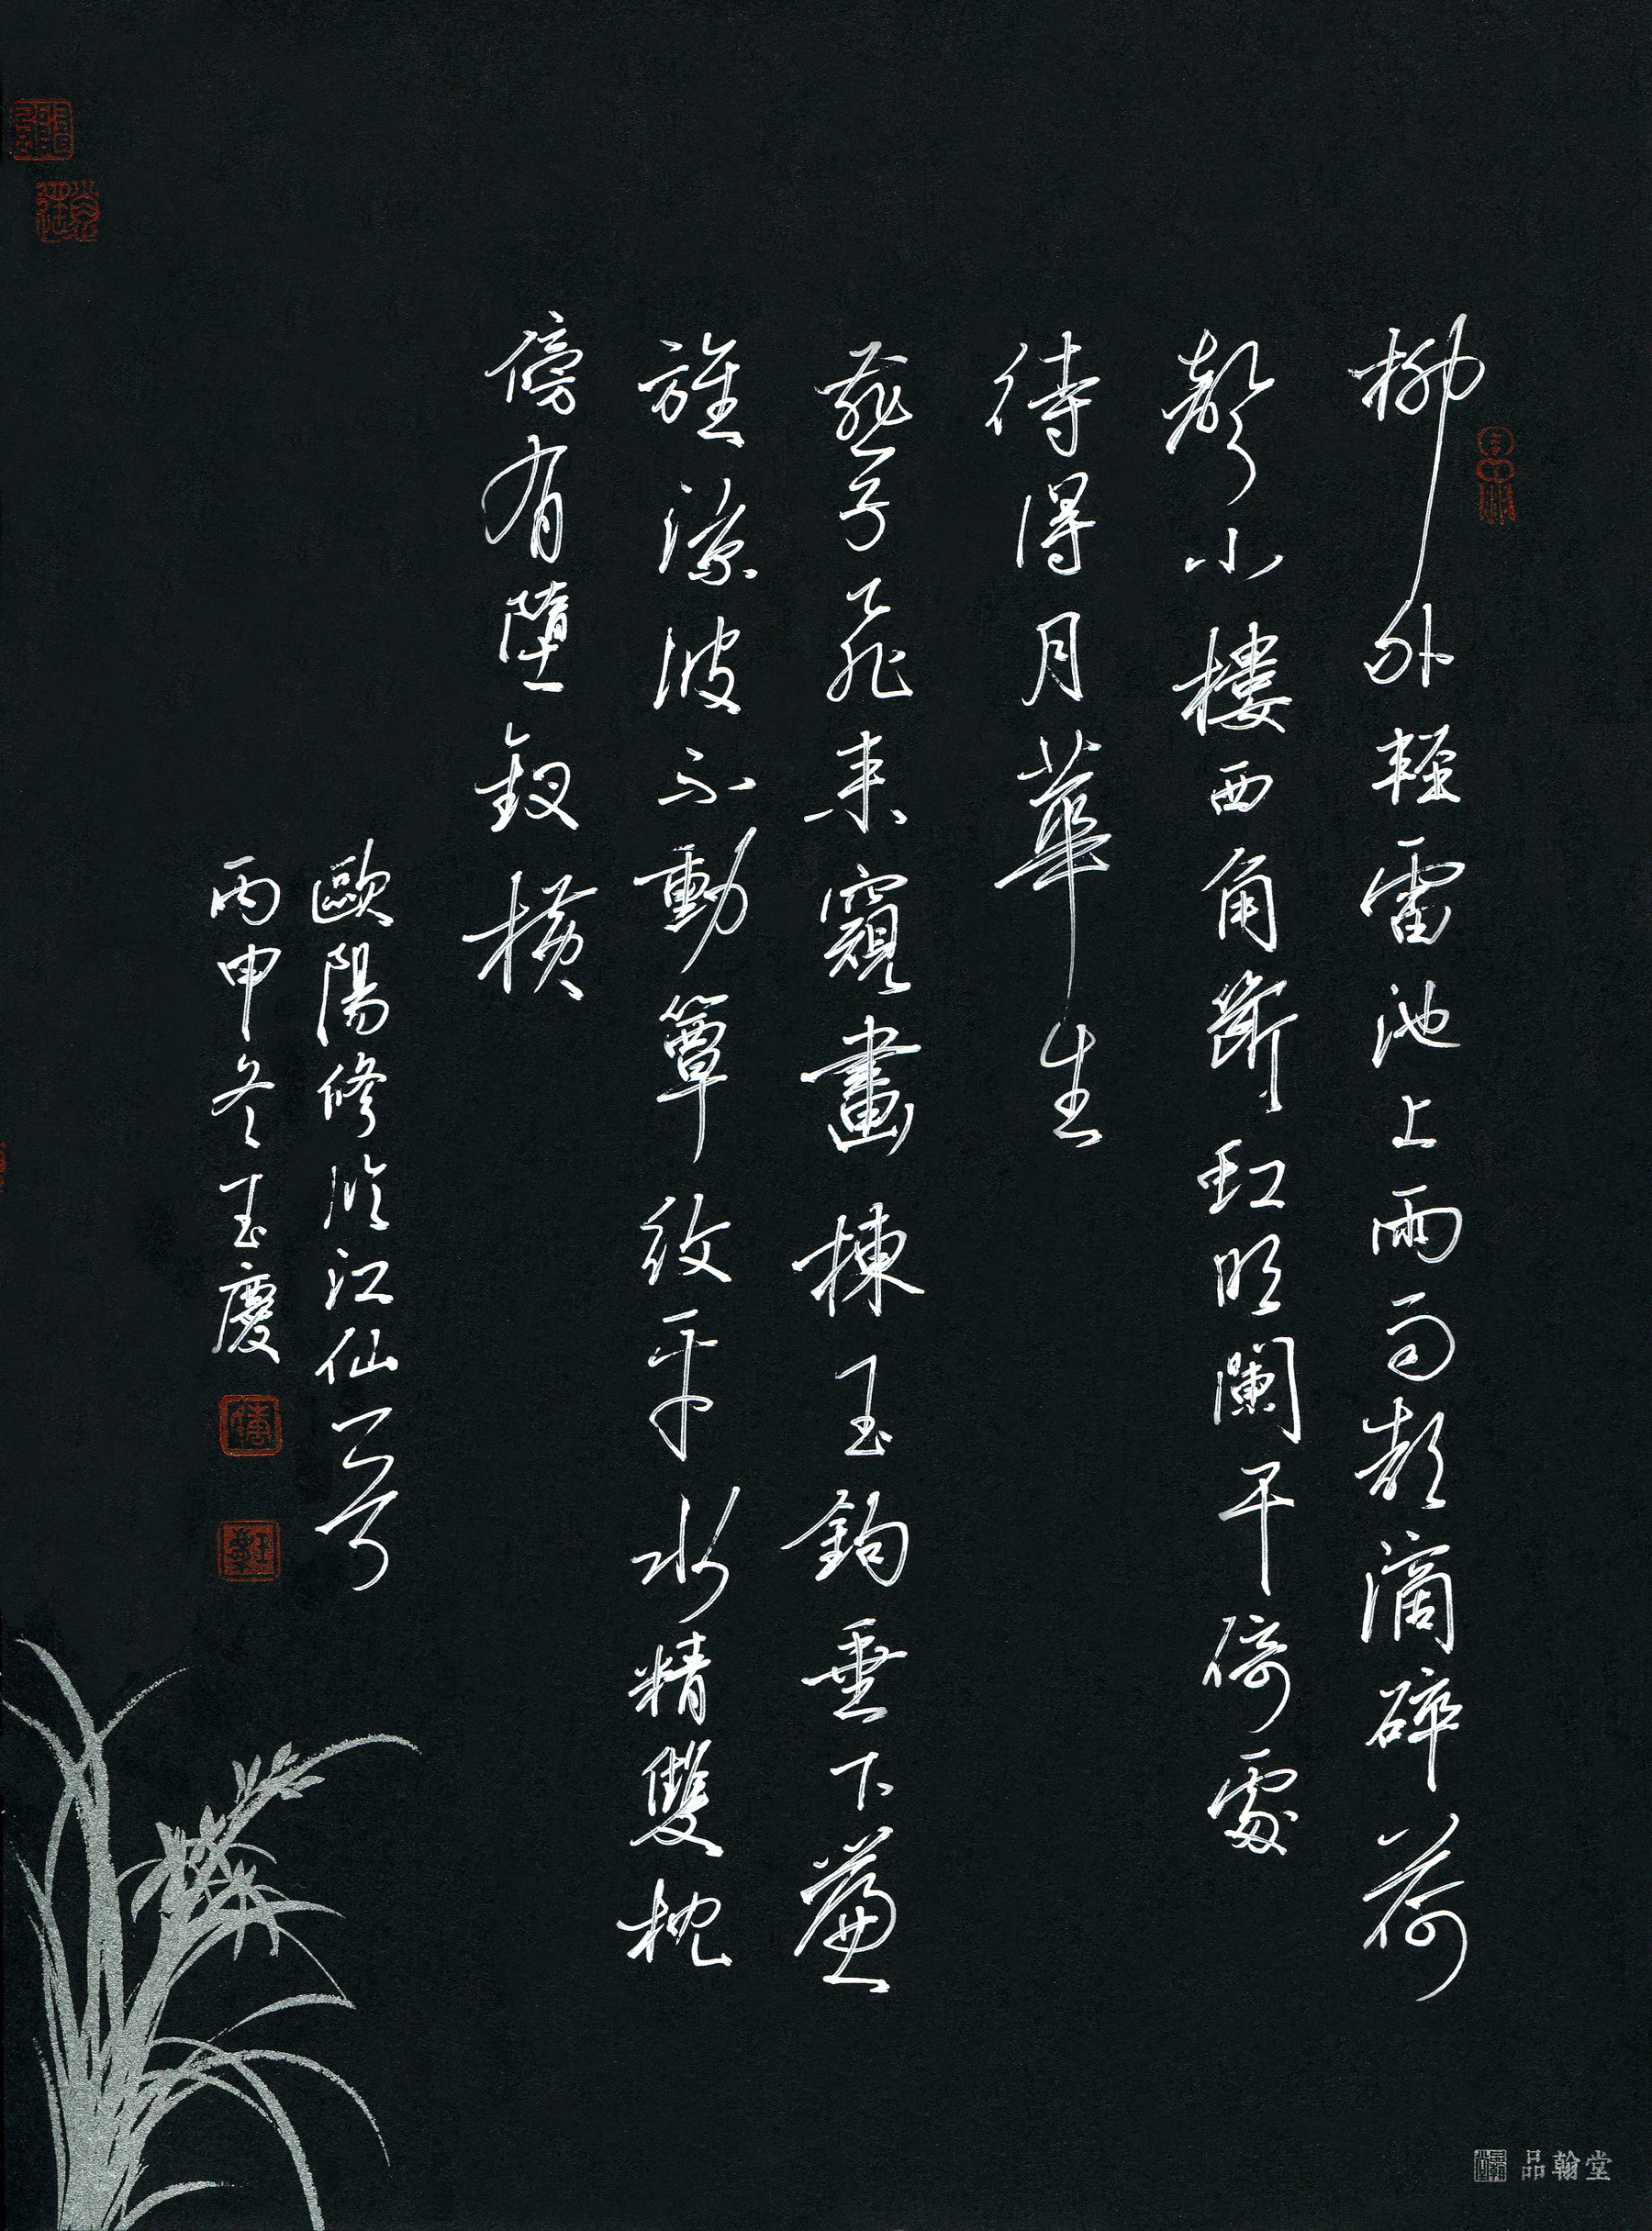 柳外輕雷池上雨雨聲滴碎荷
聲小樓西角斷虹明闌干倚處
待得月華生
燕子飛來窺畫棟玉鉤垂下簾
旌涼波不動簟紋平水精雙枕
傍有墮釵橫
歐陽修臨江仙一首
丙申冬玉慶
品翰堂